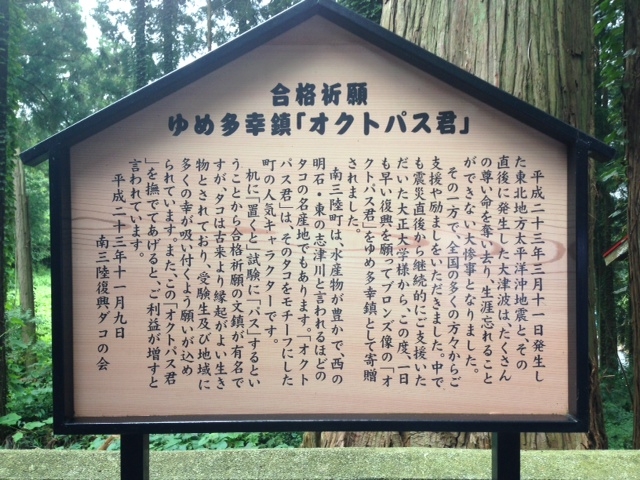 合格祈願
ゆめ多幸鎮「オクトパス君」
平成二十三年三月十一日発生し
た東北地方太平洋沖地震と、その
直後に発生した大津波は、たくさん
の尊い命を奪い去り、生涯忘れること
ができない大惨事となりました。
その一方で、全国の多くの方々からご
支援や励ましをいただきました。中で
も震災直後から継続的にご支援いた
だいた大正大学様から、この度、一日
も早い復興を願ってブロンズ像の「オ
クトパス君」をゆめ多幸鎮として寄贈
されました。
南三陸町は、水産物が豊かで、西の
明石・東の志津川と言われるほどの
タコの名産地でもあります。「オクト
パス君」は、そのタコをモチーフにした
町の人気キャラクターです。
机に「置くと」試験に「パス」するとい
うことから合格祈願の文鎮が有名で
すが、タコは古来より縁起がよい生き
物とされており、受験生及び地域に
多くの幸が吸い付くよう願いが込め
られています。また、この「オクトパス君
」を撫でてあげると、ご利益が増すと
言われています。
平成二十三年十一月九日
南三陸復興ダコの会